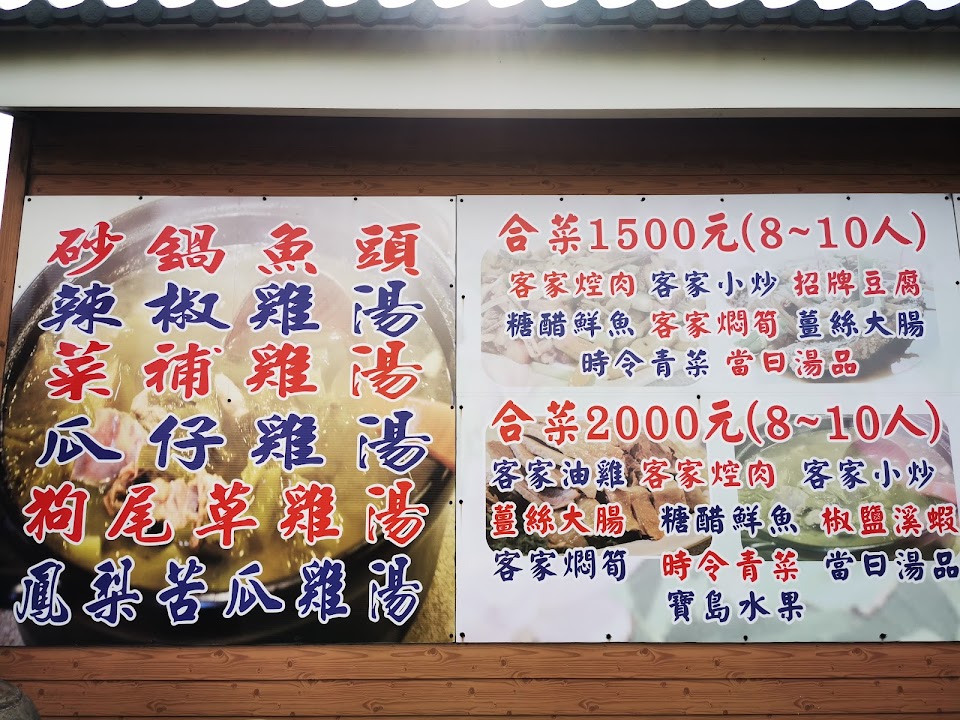 砂鍋魚頭
辣椒雞湯
菜補雞湯
瓜仔雞湯
狗尾草雞湯
鳳梨苦瓜雞湯
合菜1500元(8~10人)
客家焢肉 客家小炒 招牌豆腐
糖醋鮮魚 客家燜筍 薑絲大腸
時令青菜 當日湯品
合菜2000元(8~10人)
客家油雞 客家焢肉 客家小炒
薑絲大腸 糖醋鮮魚 椒鹽溪蝦
客家燜筍 時令青菜 當日湯品
寶島水果